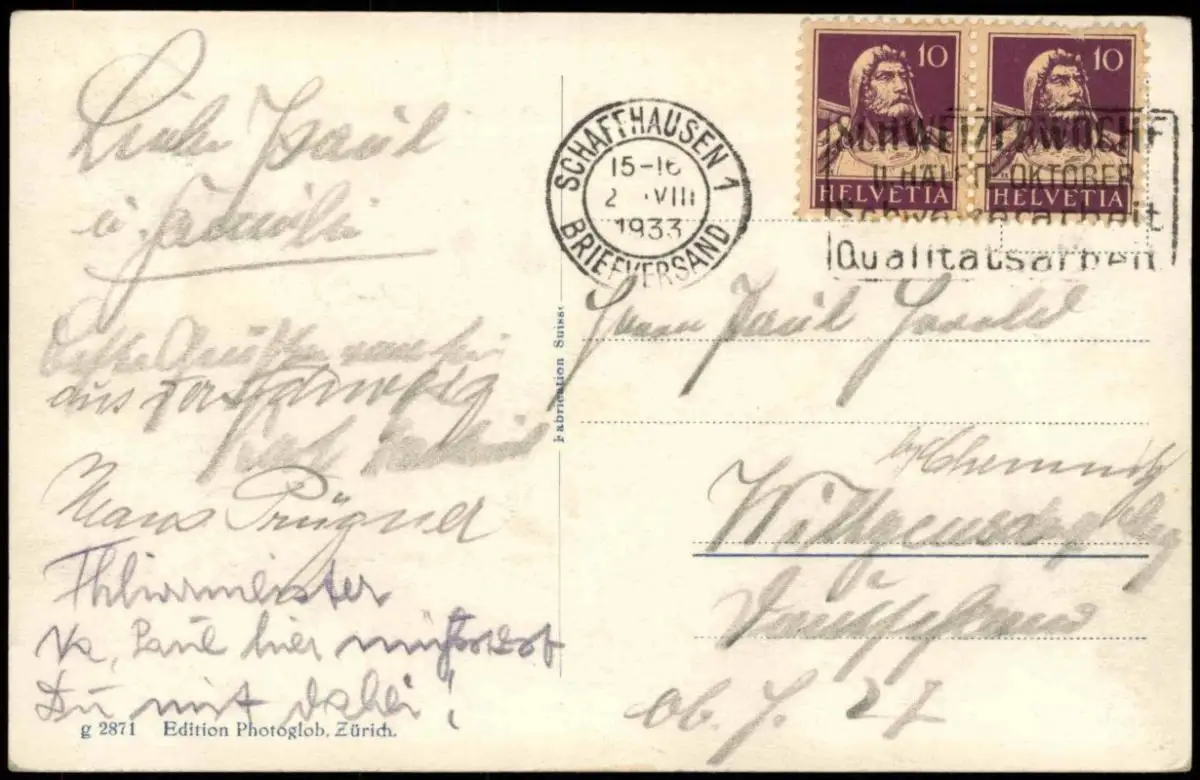 Liebe Paul
u. Familie
aus
Hans Prügner
Thürmeister
Na, Paul hier müsstest
Du mit dabei!
g 2871 Edition Photoglob, Zürich.
Fabrication Suisse
SCHAFFHAUSEN 1
15-16
2 VIII
1933
BRIEFVERSAND
10 10
HELVETIA HELVETIA
SCHWEIZERWOCHE
II. HÄLFTE OKTOBER
Schweizerarbeit
Qualitätsarbeit
Herrn Paul
by Chemnitz
Wittgensdorf
Deutschland
ob. H. 27